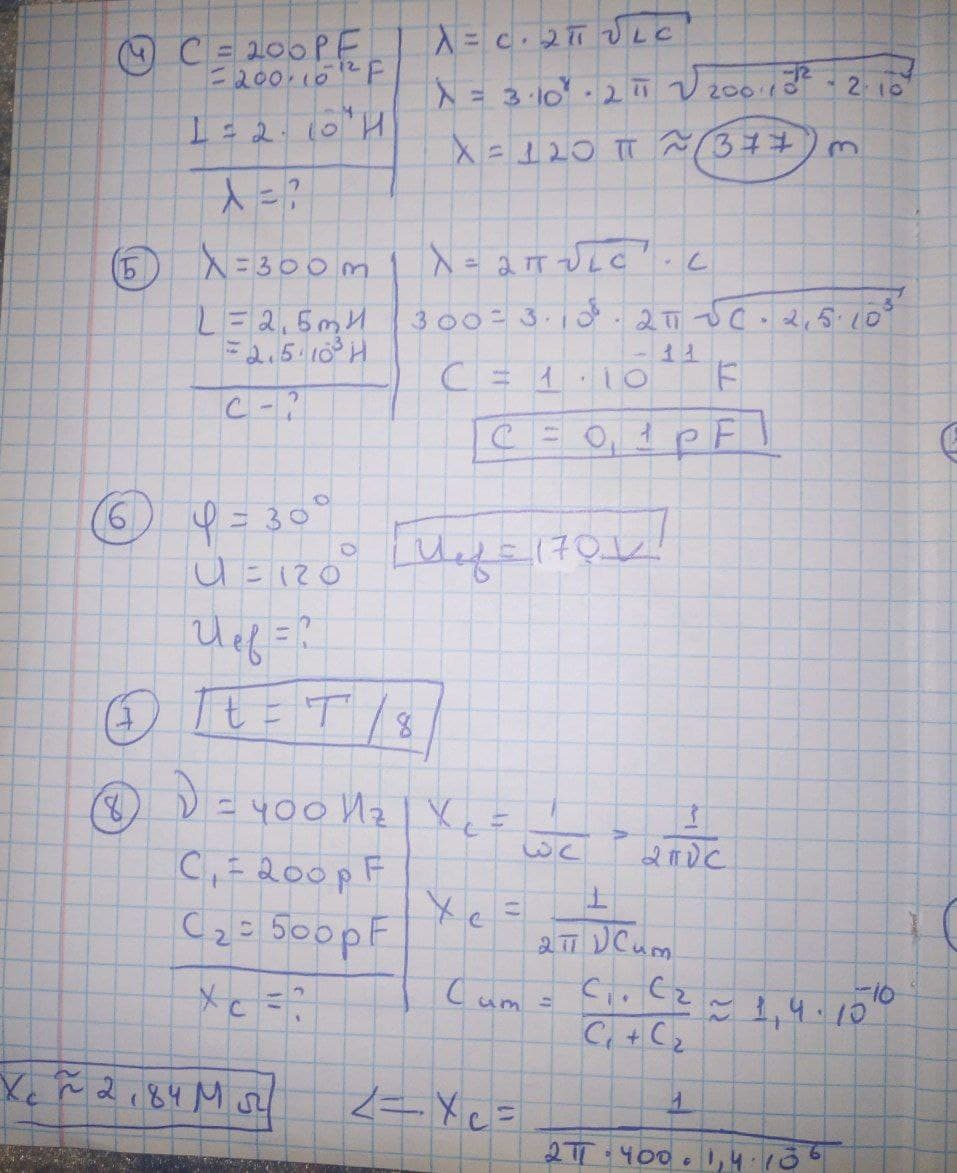 ④ C = 200 PF
= 200·10⁻¹² F
L = 2·10⁻⁴ H
λ = ?
λ = c·2π√LC
λ = 3·10⁸·2π√200·10⁻¹²·2·10⁻⁴
λ = 120π ≈ 377 m
⑤ λ = 300 m
L = 2,5 mH
= 2,5·10⁻³ H
C - ?
λ = 2π√LC · c
300 = 3·10⁸·2π√C·2,5·10⁻³
C = 1·10⁻¹¹ F
C = 0,1 pF
⑥ φ = 30°
U = 120°
Uef = ?
Uef = 170 V
⑦ t = T/8
⑧ ν = 400 Hz
C₁ = 200 pF
C₂ = 500 pF
Xc = ?
Xc = 1/ωC = 1/2πνC
Xc = 1/2πνCum
Cum = C₁·C₂/C₁+C₂ ≈ 1,4·10⁻¹⁰
Xc ≈ 2,84 MΩ <= Xc = 1/2π·400·1,4·10⁻⁶